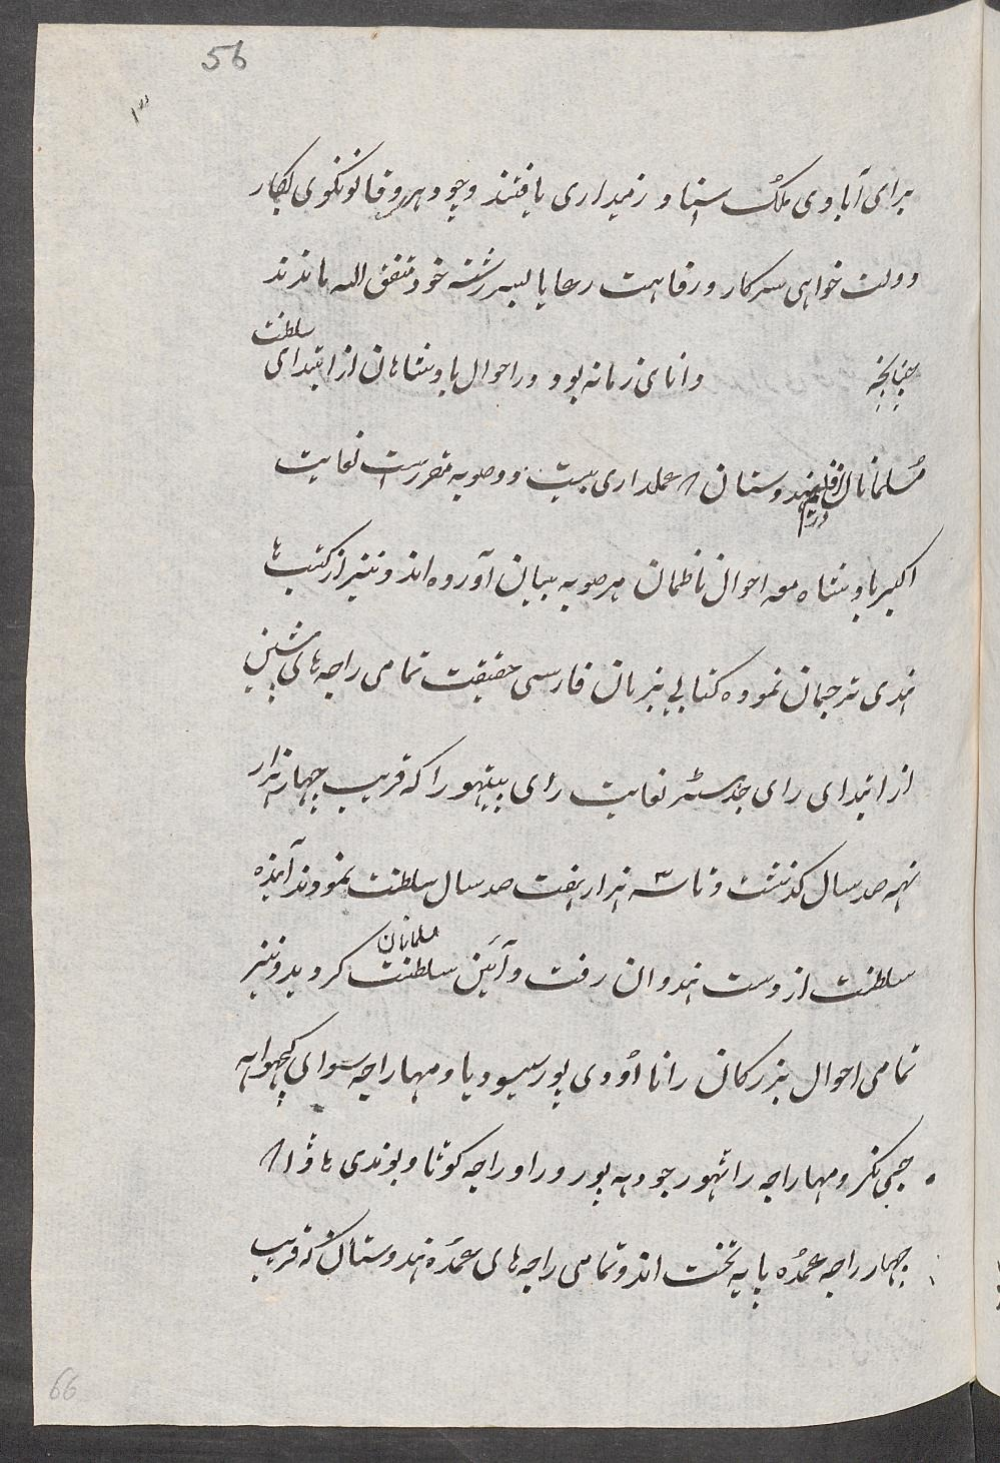 56
برای آبادی ملک اسناد زمیداری یافتند و چودهر و قانونگوی بکار
دولت خواهی سرکار و رفاهیت رعایا بسررشته خود متفق الله ماندند
چنانچه دانای زمانه بود و در احوال بادشاهان از ابتدای سلطنت
مسلمانان در اقلیم هندوستان عملداری بیست و دو صوبه مقرر ست لغایت
اکبر بادشاه معه احوال ناظمان هر صوبه ببیان آورده اند و نیز از کتب ها
هندی ترجمان نموده کتابی بزبان فارسی حقیقت تمامی راجه های پیشین
از ابتدای رای جدسٹر لغایت رای پیتهورا که قریب چهار هزار
نهه صد سال گذشت و تا سه هزار هفت صد سال سلطنت نمودند آینده
سلطنت از دست هندوان رفت و آئین سلطنت مسلمانان گردید و نیز
تمامی احوال بزرگان رانا أودی پور سیسودیا و مهاراجه سوای کچهواهه
جی نگر و مهاراجه راٹهور جودهه پور و راو راجه کوٹا و بوندی هاڈا
چهار راجه عمده پایه تخت اند و تمامی راجه های عمده هندوستان که قریب
66